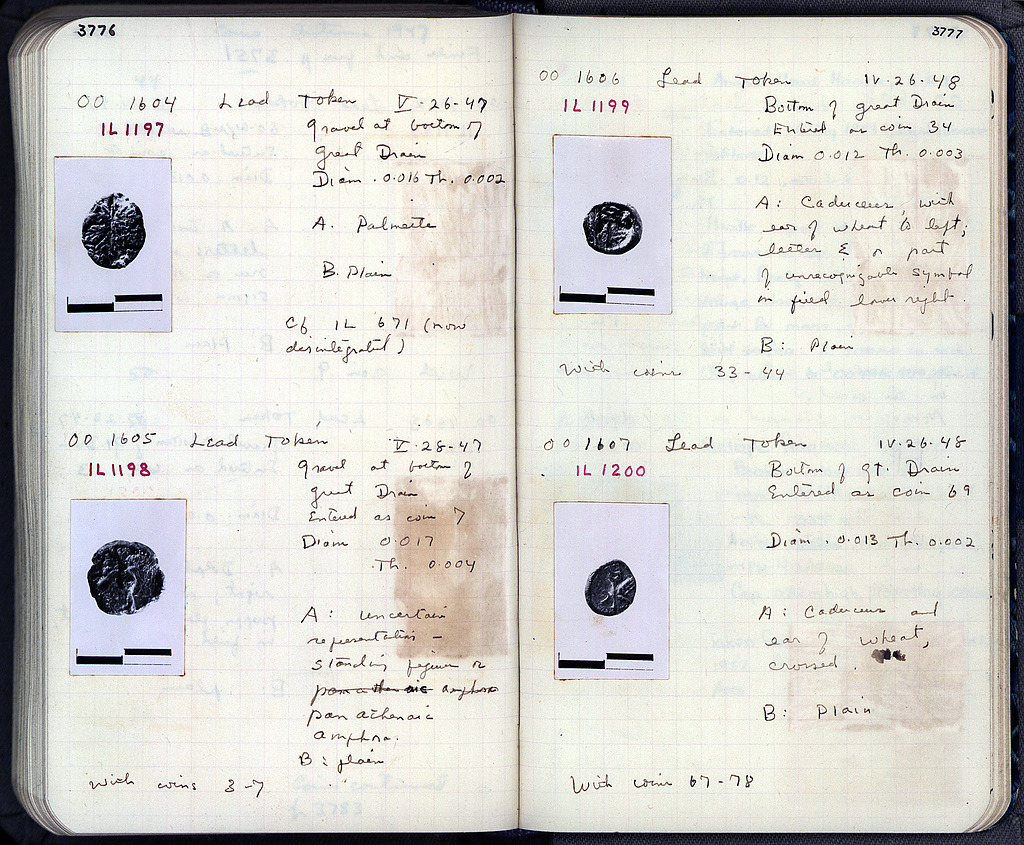 3776
OO 1604 Lead Token V-26-47
IL 1197
gravel at bottom of
great Drain
Diam. 0.016 Th. 0.002
A. Palmette
B. Plain
Cf IL 671 (now
disintegrated)
OO 1605 Lead Token V-28-47
IL 1198
gravel at bottom of
great Drain
Entered as coin 7
Diam 0.017
Th. 0.004
A: Uncertain
representation –
standing figure or
panathenaic amphora
panathenaic
amphora.
B: plain
With coins 3-7
3777
OO 1606 Lead Token IV-26-48
IL 1199
Bottom of great Drain
Entered as coin 34
Diam 0.012 Th. 0.003
A: Caduceus, with
ear of wheat to left;
letter Σ or part
of unrecognizable symbol
in field lower right.
B: Plain
With coins 33-44
OO 1607 Lead Token IV-26-48
IL 1200
Bottom of Gt. Drain
Entered as coin 69
Diam. 0.013 Th. 0.002
A: Caduceus and
ear of wheat,
crossed.
B: Plain
With coin 67-78